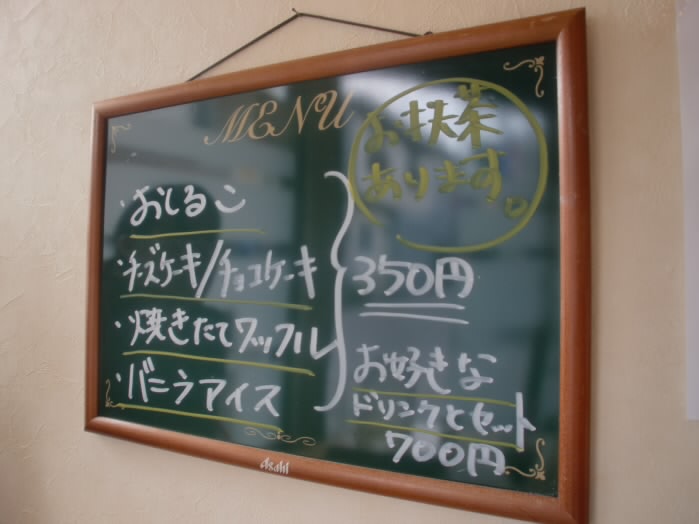 MENU
お抹茶
あります。
・おしるこ
・チーズケーキ/チョコケーキ
・焼きたてワッフル
・バニラアイス
350円
お好きな
ドリンクとセット
700円
Asahi